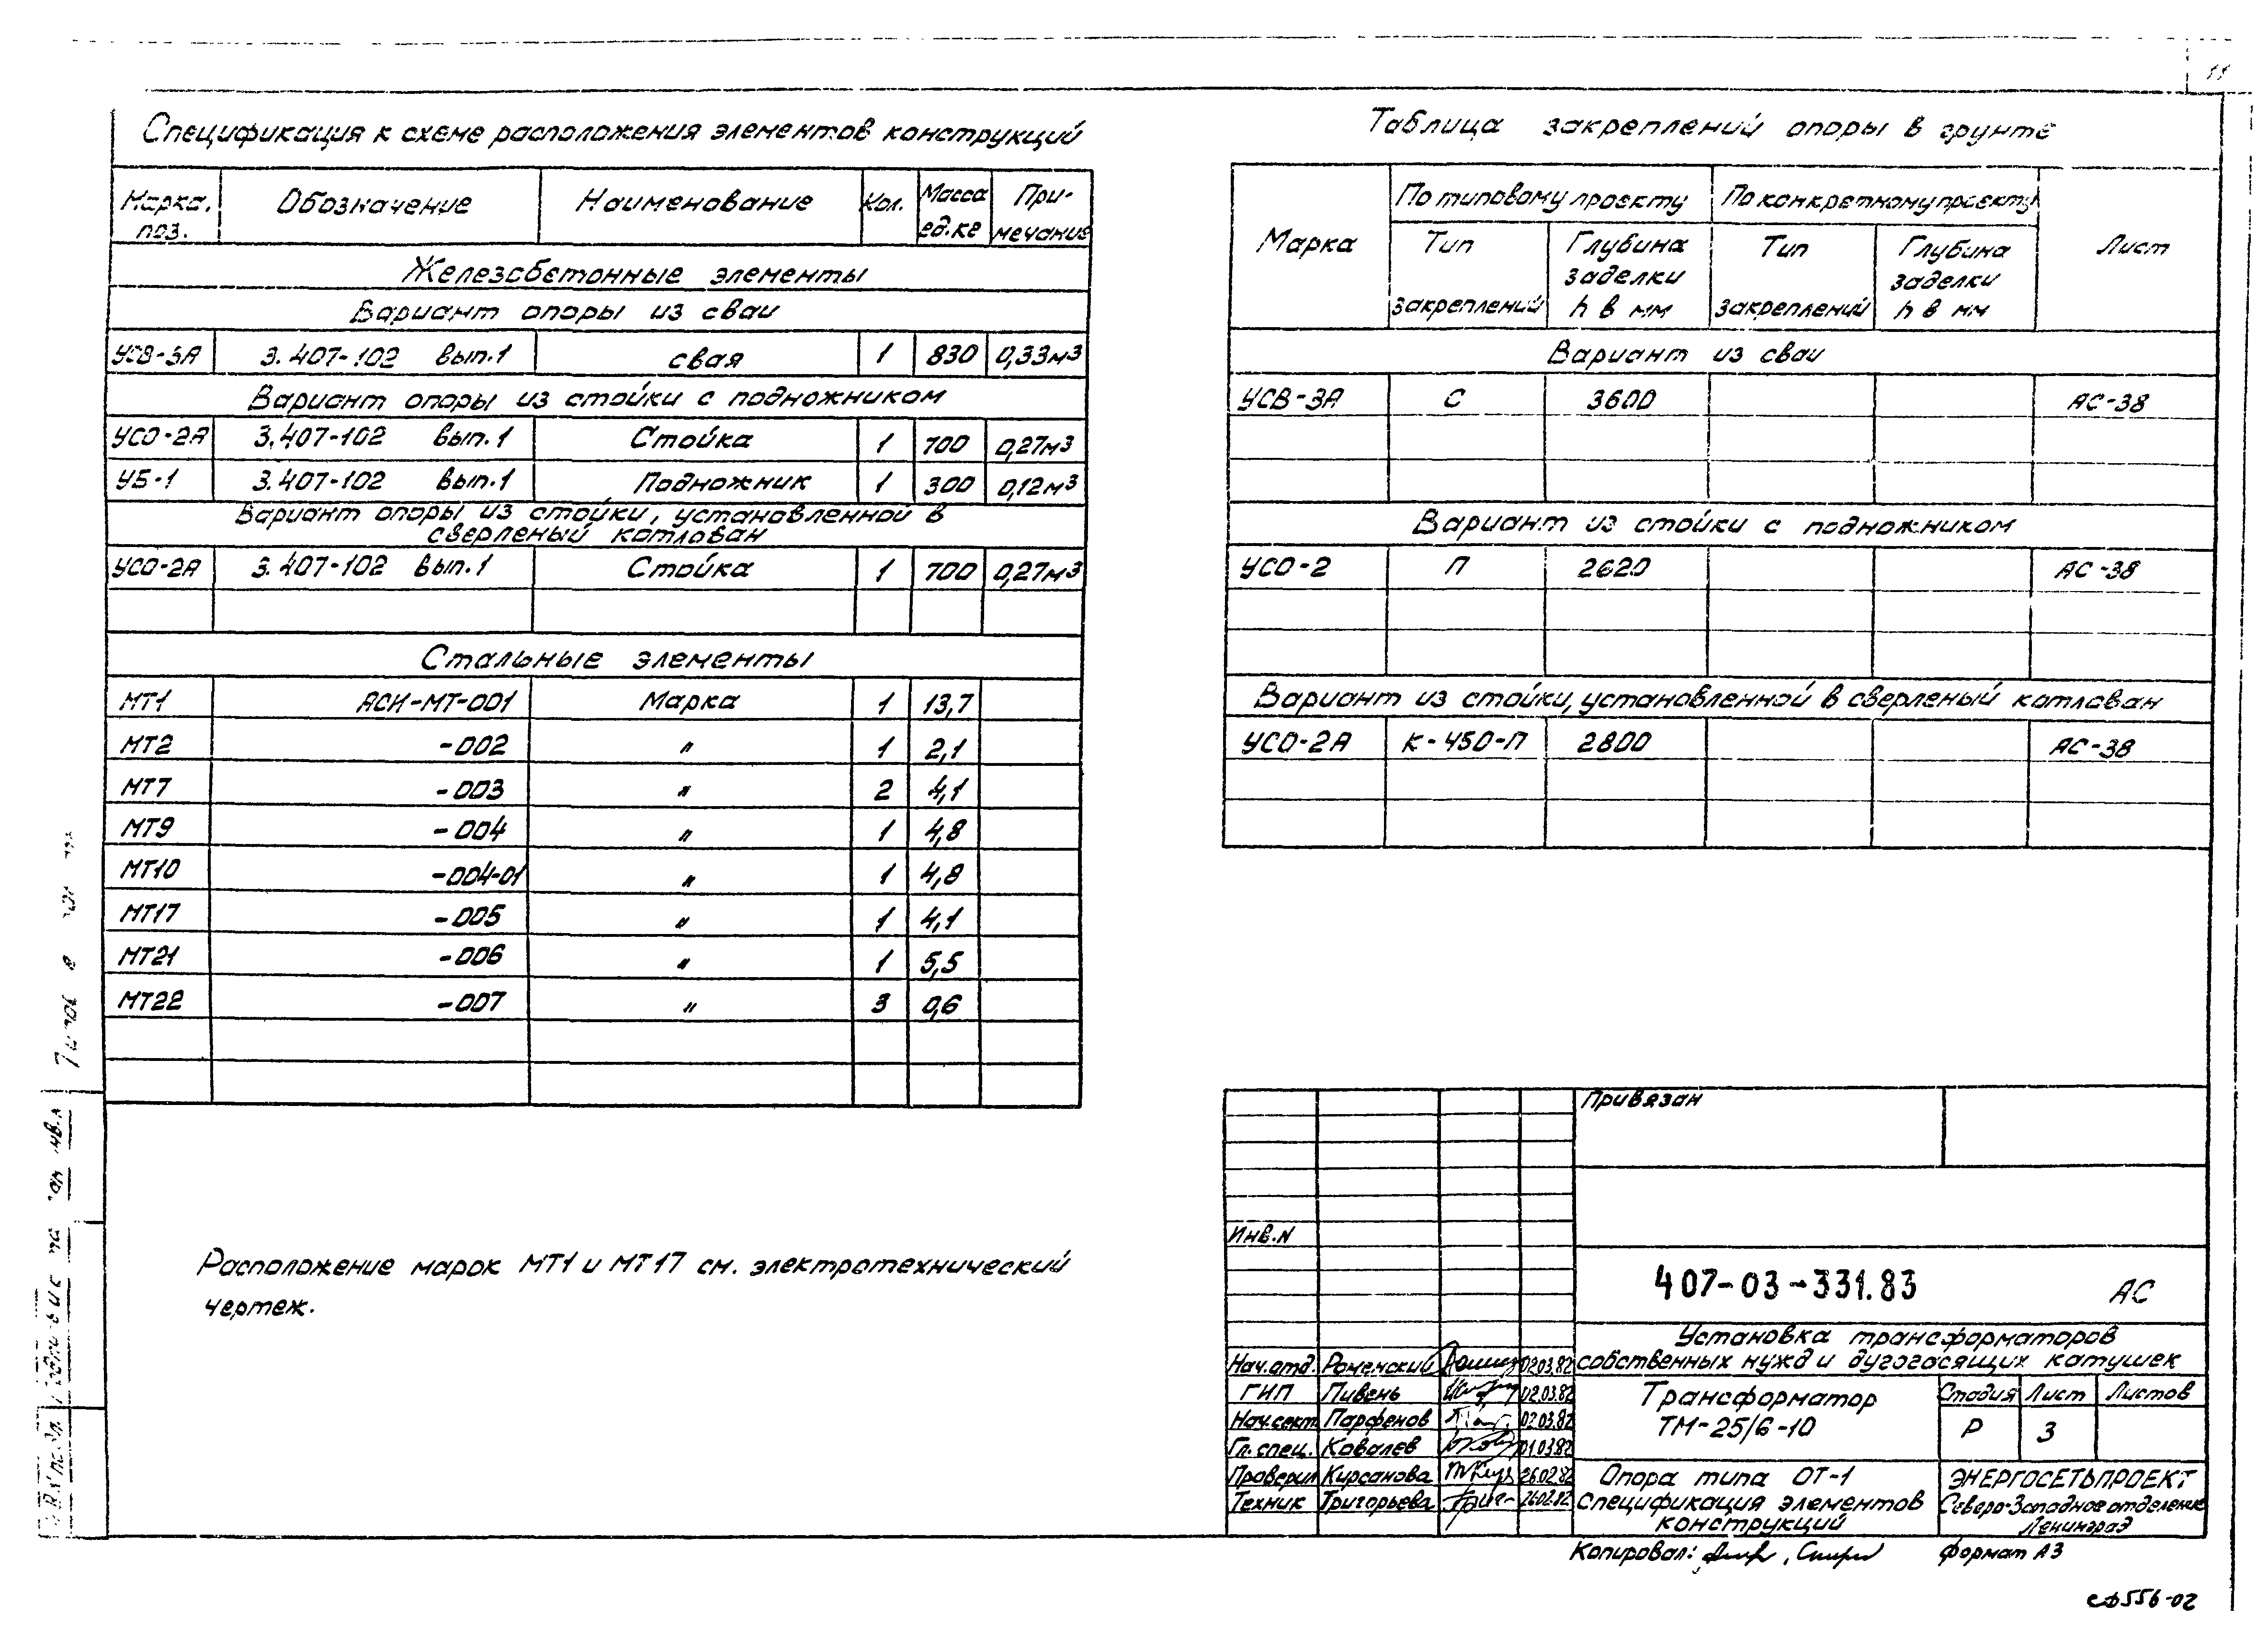 11
Спецификация к схеме расположения элементов конструкций
Марка, поз. | Обозначение | Наименование | Кол. | Масса ед.кг | Примечание
Железобетонные элементы
Вариант опоры из сваи
УСВ-3А | 3.407-102 вып.1 | свая | 1 | 830 | 0,33м³
Вариант опоры из стойки с подножником
УСО-2А | 3.407-102 вып.1 | Стойка | 1 | 700 | 0,27м³
УБ-1 | 3.407-102 вып.1 | Подножник | 1 | 300 | 0,12м³
Вариант опоры из стойки, установленной в
сверленый котлован
УСО-2А | 3.407-102 вып.1 | Стойка | 1 | 700 | 0,27м³
Стальные элементы
МТ1 | АСИ-МТ-001 | Марка | 1 | 13,7
МТ2 | -002 | " | 1 | 2,1
МТ7 | -003 | " | 2 | 4,1
МТ9 | -004 | " | 1 | 4,8
МТ10 | -004-01 | " | 1 | 4,8
МТ17 | -005 | " | 1 | 4,1
МТ21 | -006 | " | 1 | 5,5
МТ22 | -007 | " | 3 | 0,6
Расположение марок МТ1 и МТ17 см. электротехнический
чертеж.
Таблица закреплений опоры в грунте
Марка | По типовому проекту | По конкретному проекту | Лист
Тип закреплений | Глубина заделки h в мм | Тип закреплений | Глубина заделки h в мм
Вариант из сваи
УСВ-3А | С | 3600 | АС-38
Вариант из стойки с подножником
УСО-2 | П | 2620 | АС-38
Вариант из стойки, установленной в сверленый котлован
УСО-2А | К-450-П | 2800 | АС-38
Привязан
Инв.N
407-03-331.83 АС
Установка трансформаторов
собственных нужд и дугогасящих катушек
Нач.отд. Роменский 02.03.82
ГИП Пивень 02.03.82
Нач.сект. Парфенов 02.03.82
Гл.спец. Ковалев 01.03.82
Проверил Кирсанова 26.02.82
Техник Григорьева 26.02.82
Трансформатор
ТМ-25/6-10
Стадия | Лист | Листов
Р | 3
Опора типа ОТ-1
Спецификация элементов
конструкций
ЭНЕРГОСЕТЬПРОЕКТ
Северо-Западное отделение
Ленинград
Копировал: формат А3
сф556-02